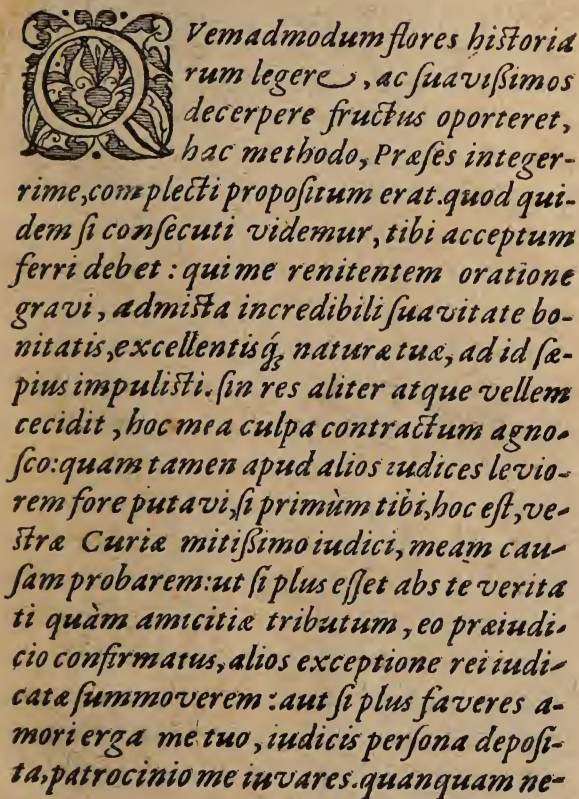 QVemadmodum flores historia
rum legere, ac suavißimos
decerpere fructus oporteret,
hac methodo, Præses integer-
rime, complecti propositum erat. quod qui-
dem si consecuti videmur, tibi acceptum
ferri debet : qui me renitentem oratione
gravi, admista incredibili suavitate bo-
nitatis, excellentisq́; naturæ tuæ, ad id sæ-
pius impulisti. sin res aliter atque vellem
cecidit, hoc mea culpa contractum agno-
sco: quam tamen apud alios iudices levio-
rem fore putavi, si primùm tibi, hoc est, ve-
stræ Curiæ mitißimo iudici, meam cau-
sam probarem: ut si plus esset abs te verita
ti quàm amicitiæ tributum, eo præiudi-
cio confirmatus, alios exceptione rei iudi-
catæ summoverem : aut si plus faveres a-
mori erga me tuo, iudicis persona deposi-
ta, patrocinio me iuvares. quanquam ne-